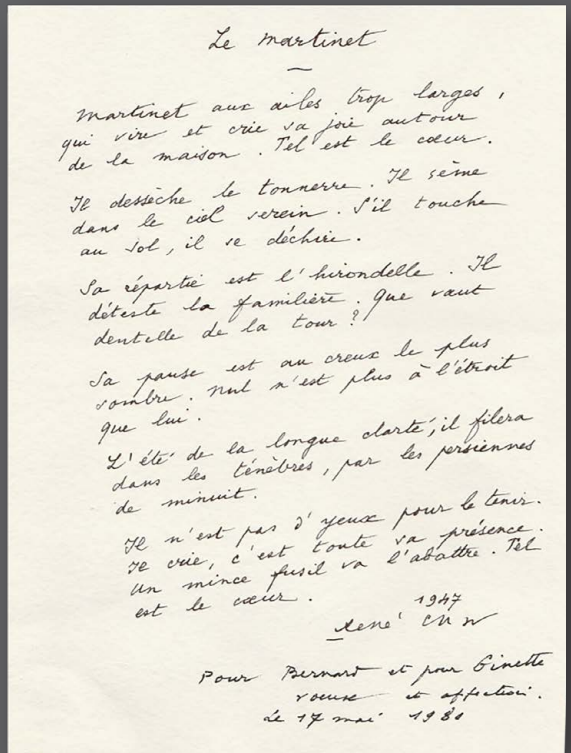 Le martinet
Martinet aux ailes trop larges,
qui vire et crie sa joie autour
de la maison. Tel est le cœur.
Il dessèche le tonnerre. Il sème
dans le ciel serein. S'il touche
au sol, il se déchire.
Sa répartie est l'hirondelle. Il
déteste la familière. Que vaut
dentelle de la tour ?
Sa pause est au creux le plus
sombre. Nul n'est plus à l'étroit
que lui.
L'été de la longue clarté, il filera
dans les ténèbres, par les persiennes
de minuit.
Il n'est pas d'yeux pour le tenir.
Il crie, c'est toute sa présence.
Un mince fusil va l'abattre. Tel
est le cœur.
1947
René Char
Pour Bernard et pour Ginette
et affection.
Le 17 mai 1981